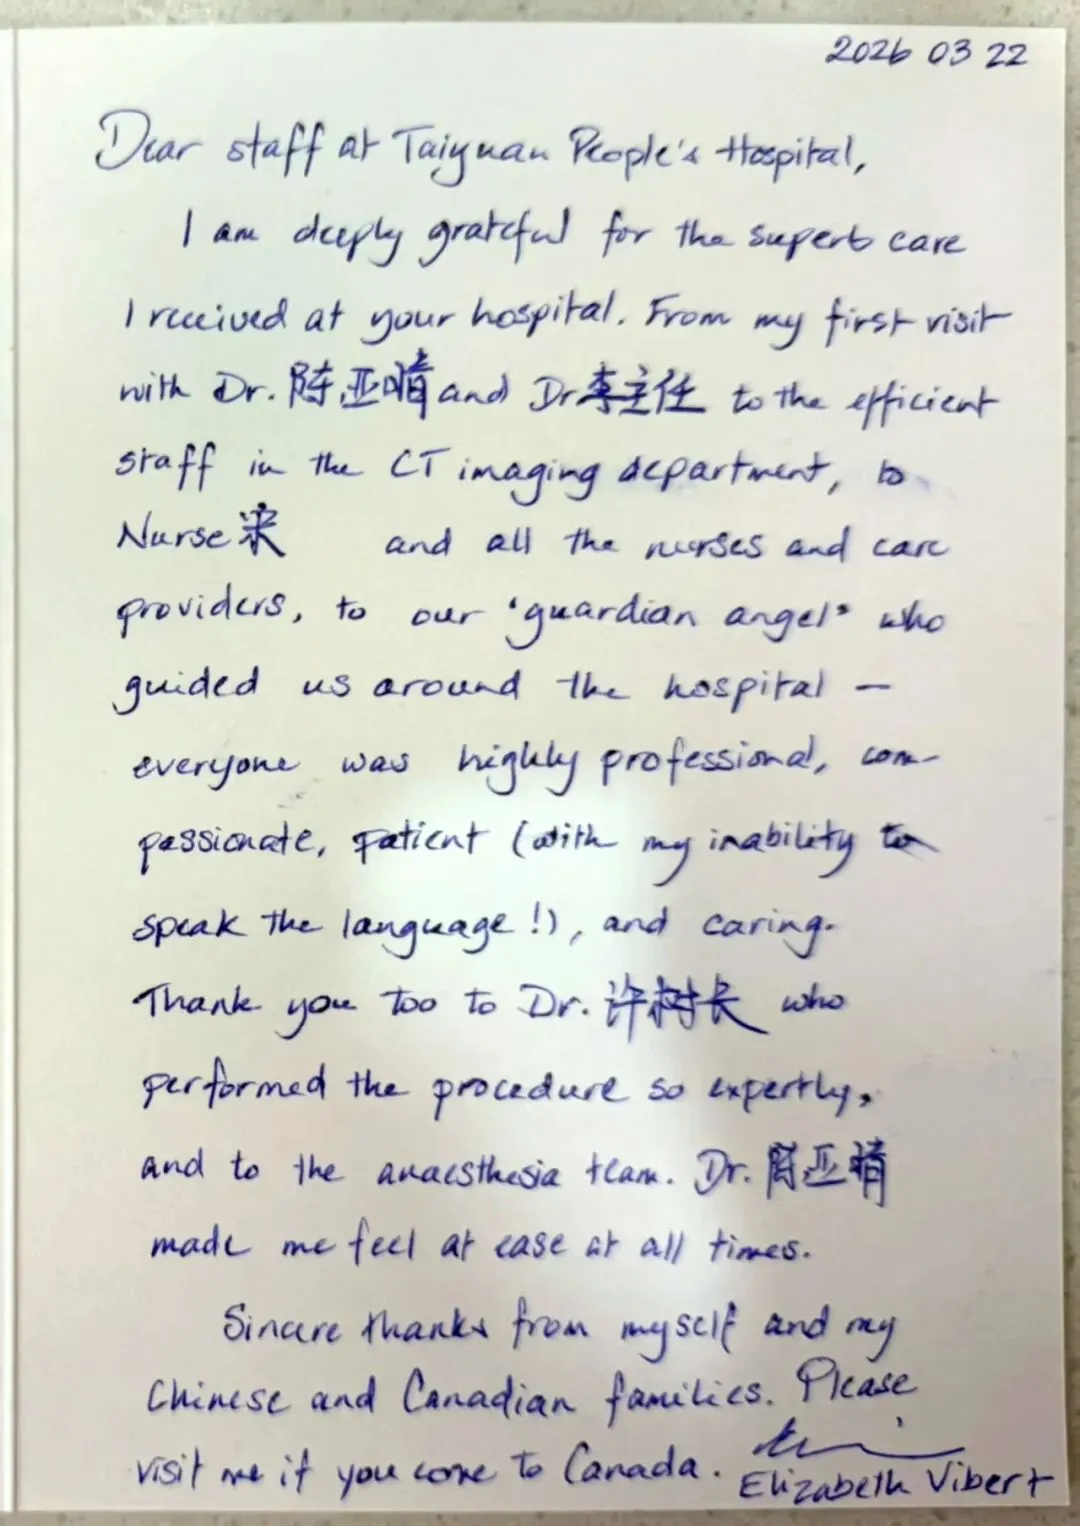 2026 03 22
Dear staff at Taiyuan People's Hospital,
I am deeply grateful for the superb care
I received at your hospital. From my first visit
with Dr. 陈亚晴 and Dr 李主任 to the efficient
staff in the CT imaging department, to
Nurse and all the nurses and care
providers, to our "guardian angel" who
guided us around the hospital —
everyone was highly professional, com-
passionate, patient (with my inability to
speak the language!), and caring.
Thank you too to Dr. 许树长 who
performed the procedure so expertly,
and to the anaesthesia team. Dr. 陈亚晴
made me feel at ease at all times.
Sincere thanks from myself and my
Chinese and Canadian families. Please
visit me if you come to Canada.
Elizabeth Vibert